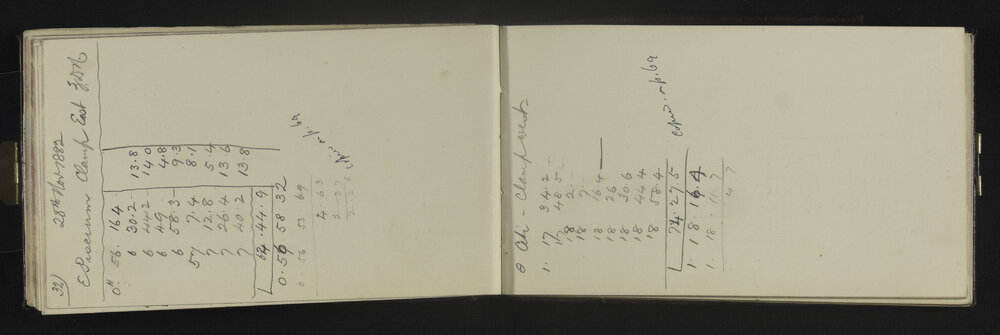 32)
28th Nov 1882
E Procium Clamp East
0h. 56. 16.4
6 30.2 - 13.8
6 44.2 - 14.0
6 49. - 4.8
6 58.3 - 9.3
57 7.4 8.1
7 12.8 5.4
7 26.4 13.6
7 40.2 13.8
44.9
0.56 58 32
0. 56 53 69
4 63
2 37
θ Ceti - Clamp west
1. 17 34.2
17 48.5 -
18 2. -
18 7. -
18 16.4 —
18 26
18 30.6
18 44.4
18 58.4
74. 27.5
1. 18. 16.4
1. 18. 11.7
4 7
Copied on p. 69